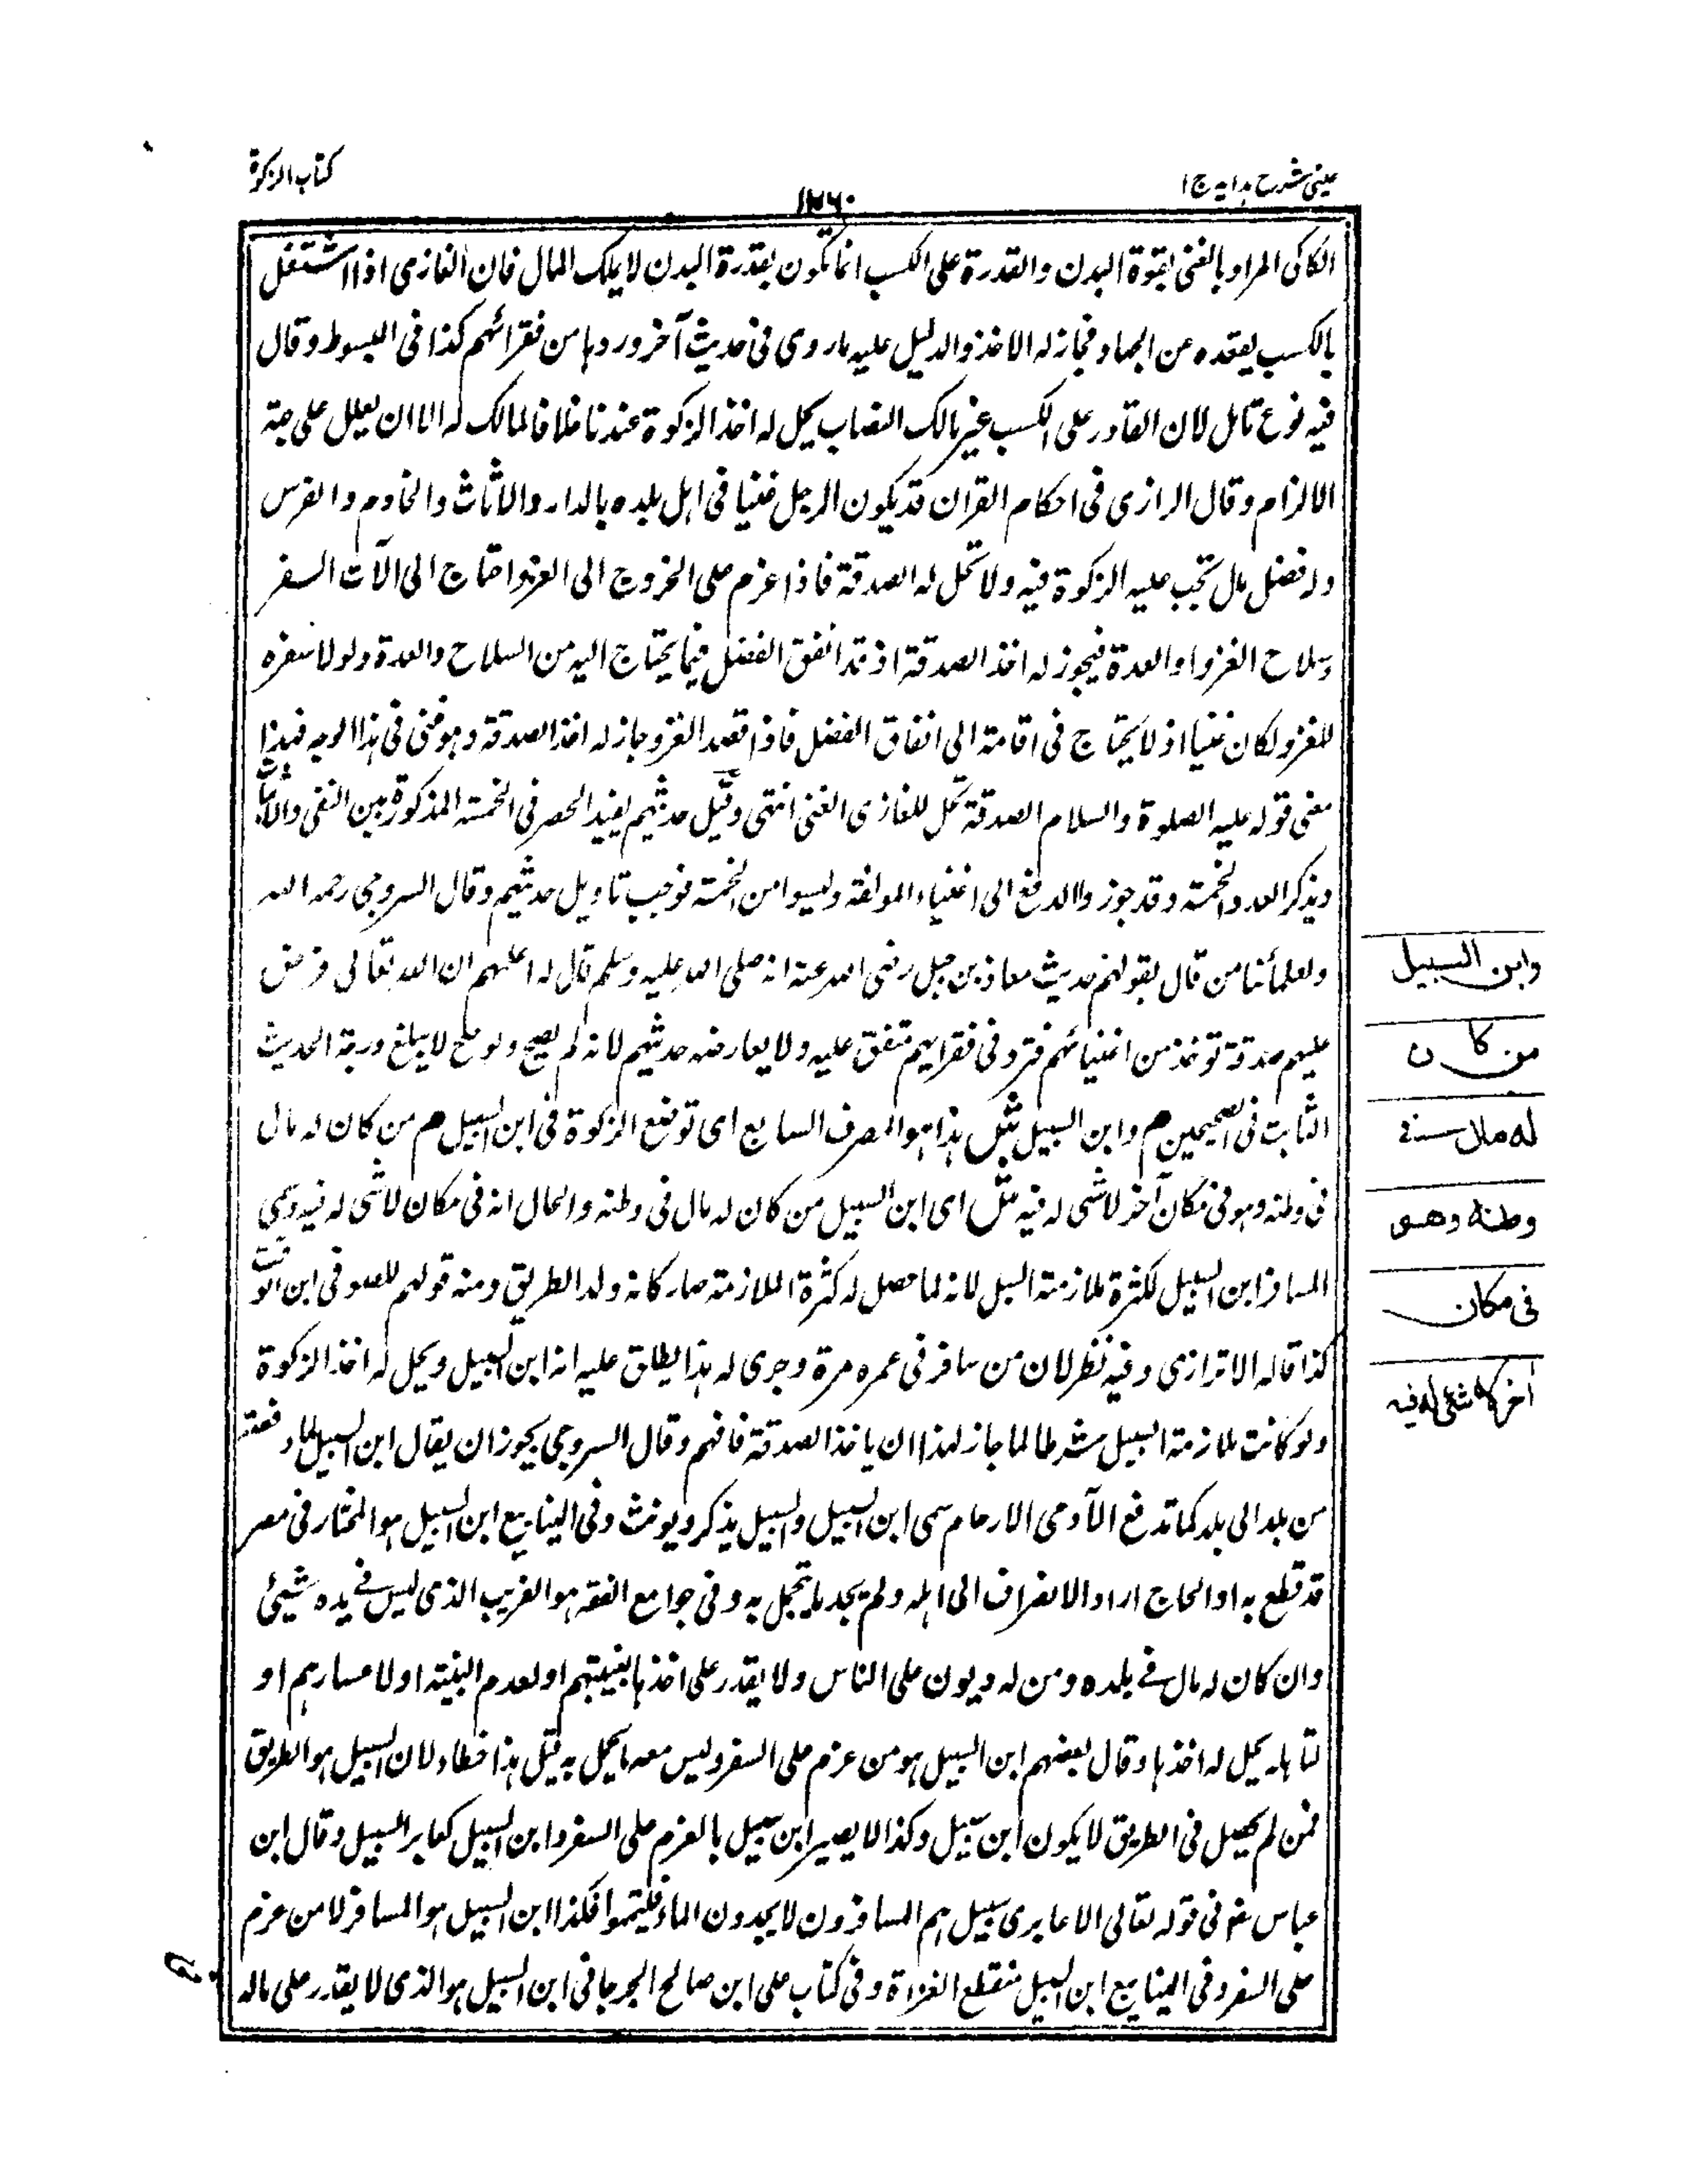 عینی شرح ہدایہ ج ۱
۱۲۶۰
کتاب الزکوة
الکاکی المراد بالغنی بقوة البدن والقدرة علی الکسب انما تکون بقدرة البدن لا بملک المال فان الغازی اذا اشتغل
بالکسب یقعده عن الجهاد فجاز له الاخذ والدلیل علیه ما روی فی حدیث آخر وردها من فقرائهم کذا فی المبسوط وقال
فیه نوع تامل لان القادر علی الکسب غیر مالک النصاب یحل له اخذ الزکوة عندنا خلافا لمالک له الا ان یعلل علی جهة
الالزام وقال الرازی فی احکام القران قد یکون الرجل غنیا فی اهل بلده بالدار والاثاث والخادم والفرس
وله فضل مال تجب علیه الزکوة فیه ولا تحل له الصدقة فاذا عزم علی الخروج الی الغزو احتاج الی الآت السفر
وسلاح الغزو او العدة فیجوز له اخذ الصدقة اذ قد انفق الفضل فیما یحتاج الیه من السلاح والعدة ولولا سفره
للغزو لکان غنیا اذ لا یحتاج فی اقامته الی انفاق الفضل فاذا قصد الغزو جاز له اخذ الصدقة وهو غنی فی هذا الوجه فهذا
معنی قوله علیه الصلوة والسلام الصدقة تحل للغازی الغنی انتهی وقیل حدیثهم یفید الحصر فی الخمسة المذکورة بین النفی والاثبات
ویذکر العدد الخمسة وقد جوزوا الدفع الی اغنیاء المولفة ولیسوا من الخمسة فوجب تاویل حدیثهم وقال السروجی رحمه الله
ولعلمائنا من قال بقولهم حدیث معاذ بن جبل رضی الله عنه انه صلی الله علیه وسلم قال له اعلمهم ان الله تعالی فرض
علیهم صدقة توخذ من اغنیائهم فترد فی فقرایهم متفق علیه ولا یعارضه حدیثهم لانه لم یصح ولو صح لا یبلغ درجة الحدیث
الثابت فی الصحیحین م وابن السبیل ش هذا هو المصرف السابع ای توضع الزکوة فی ابن السبیل م من کان له مال
فی وطنه وهو فی مکان آخر لا شی له فیه ش ای ابن السبیل من کان له مال فی وطنه والحال انه فی مکان لا شی له فیه وسمی
المسافر ابن السبیل لکثرة ملازمة السبل لانه لما حصل له کثرة الملازمة صار کانه ولد الطریق ومنه قولهم للصوفی ابن الوقت
کذا قاله الاترازی وفیه نظر لان من سافر فی عمره مرة وجری له هذا یطلق علیه انه ابن السبیل ویحل له اخذ الزکوة
ولو کانت ملازمة السبیل شرطا لما جاز لهذا ان یاخذ الصدقة فافهم وقال السروجی یجوز ان یقال ابن السبیل لما دفعته
من بلد الی بلد کما تدفع الآدمی الارحام سمی ابن السبیل والسبیل یذکر ویونث وفی الینابیع ابن السبیل هو المختار فی مصر
قد قطع به او الحاج اراد الانصراف الی اهله ولم یجد ما یتحمل به وفی جوامع الفقه هو الغریب الذی لیس فی یده شیئ
وان کان له مال فی بلده ومن له دیون علی الناس ولا یقدر علی اخذها لغیبتهم او لعدم البینة او لاعسارهم او
لتاجیله یحل له اخذها وقال بعضهم ابن السبیل هو من عزم علی السفر ولیس معه ما یحمل به قیل هذا خطاء لان السبیل هو الطریق
فمن لم یحصل فی الطریق لا یکون ابن سبیل وکذا لا یصیر ابن سبیل بالعزم علی السفر وابن السبیل کعابر السبیل وقال ابن
عباس رضه فی قوله تعالی الا عابری سبیل هم المسافرون لا یجدون الماء فلیتیمموا فکذا ابن السبیل هو المسافر لا من عزم
علی السفر وفی الینابیع ابن السبیل منقطع الغزاة وفی کتاب علی ابن صالح الجرجانی ابن السبیل هو الذی لا یقدر علی ماله
وابن السبیل
من کان
له مال فی
وطنه وهو
فی مکان
آخر لا شئ له فیه